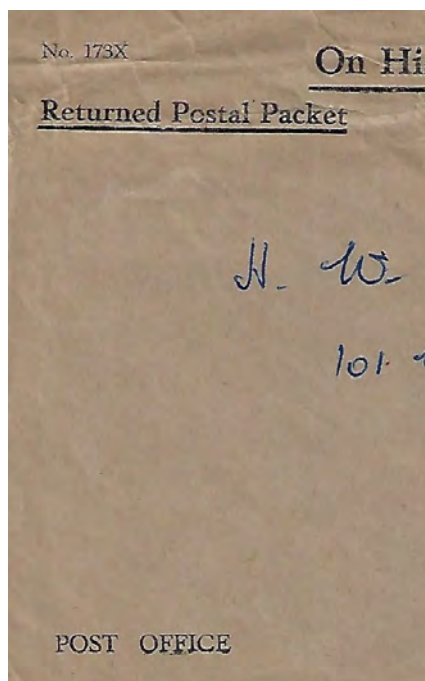 No. 173X
On
Returned Postal Packet
H. W.
101
POST OFFICE